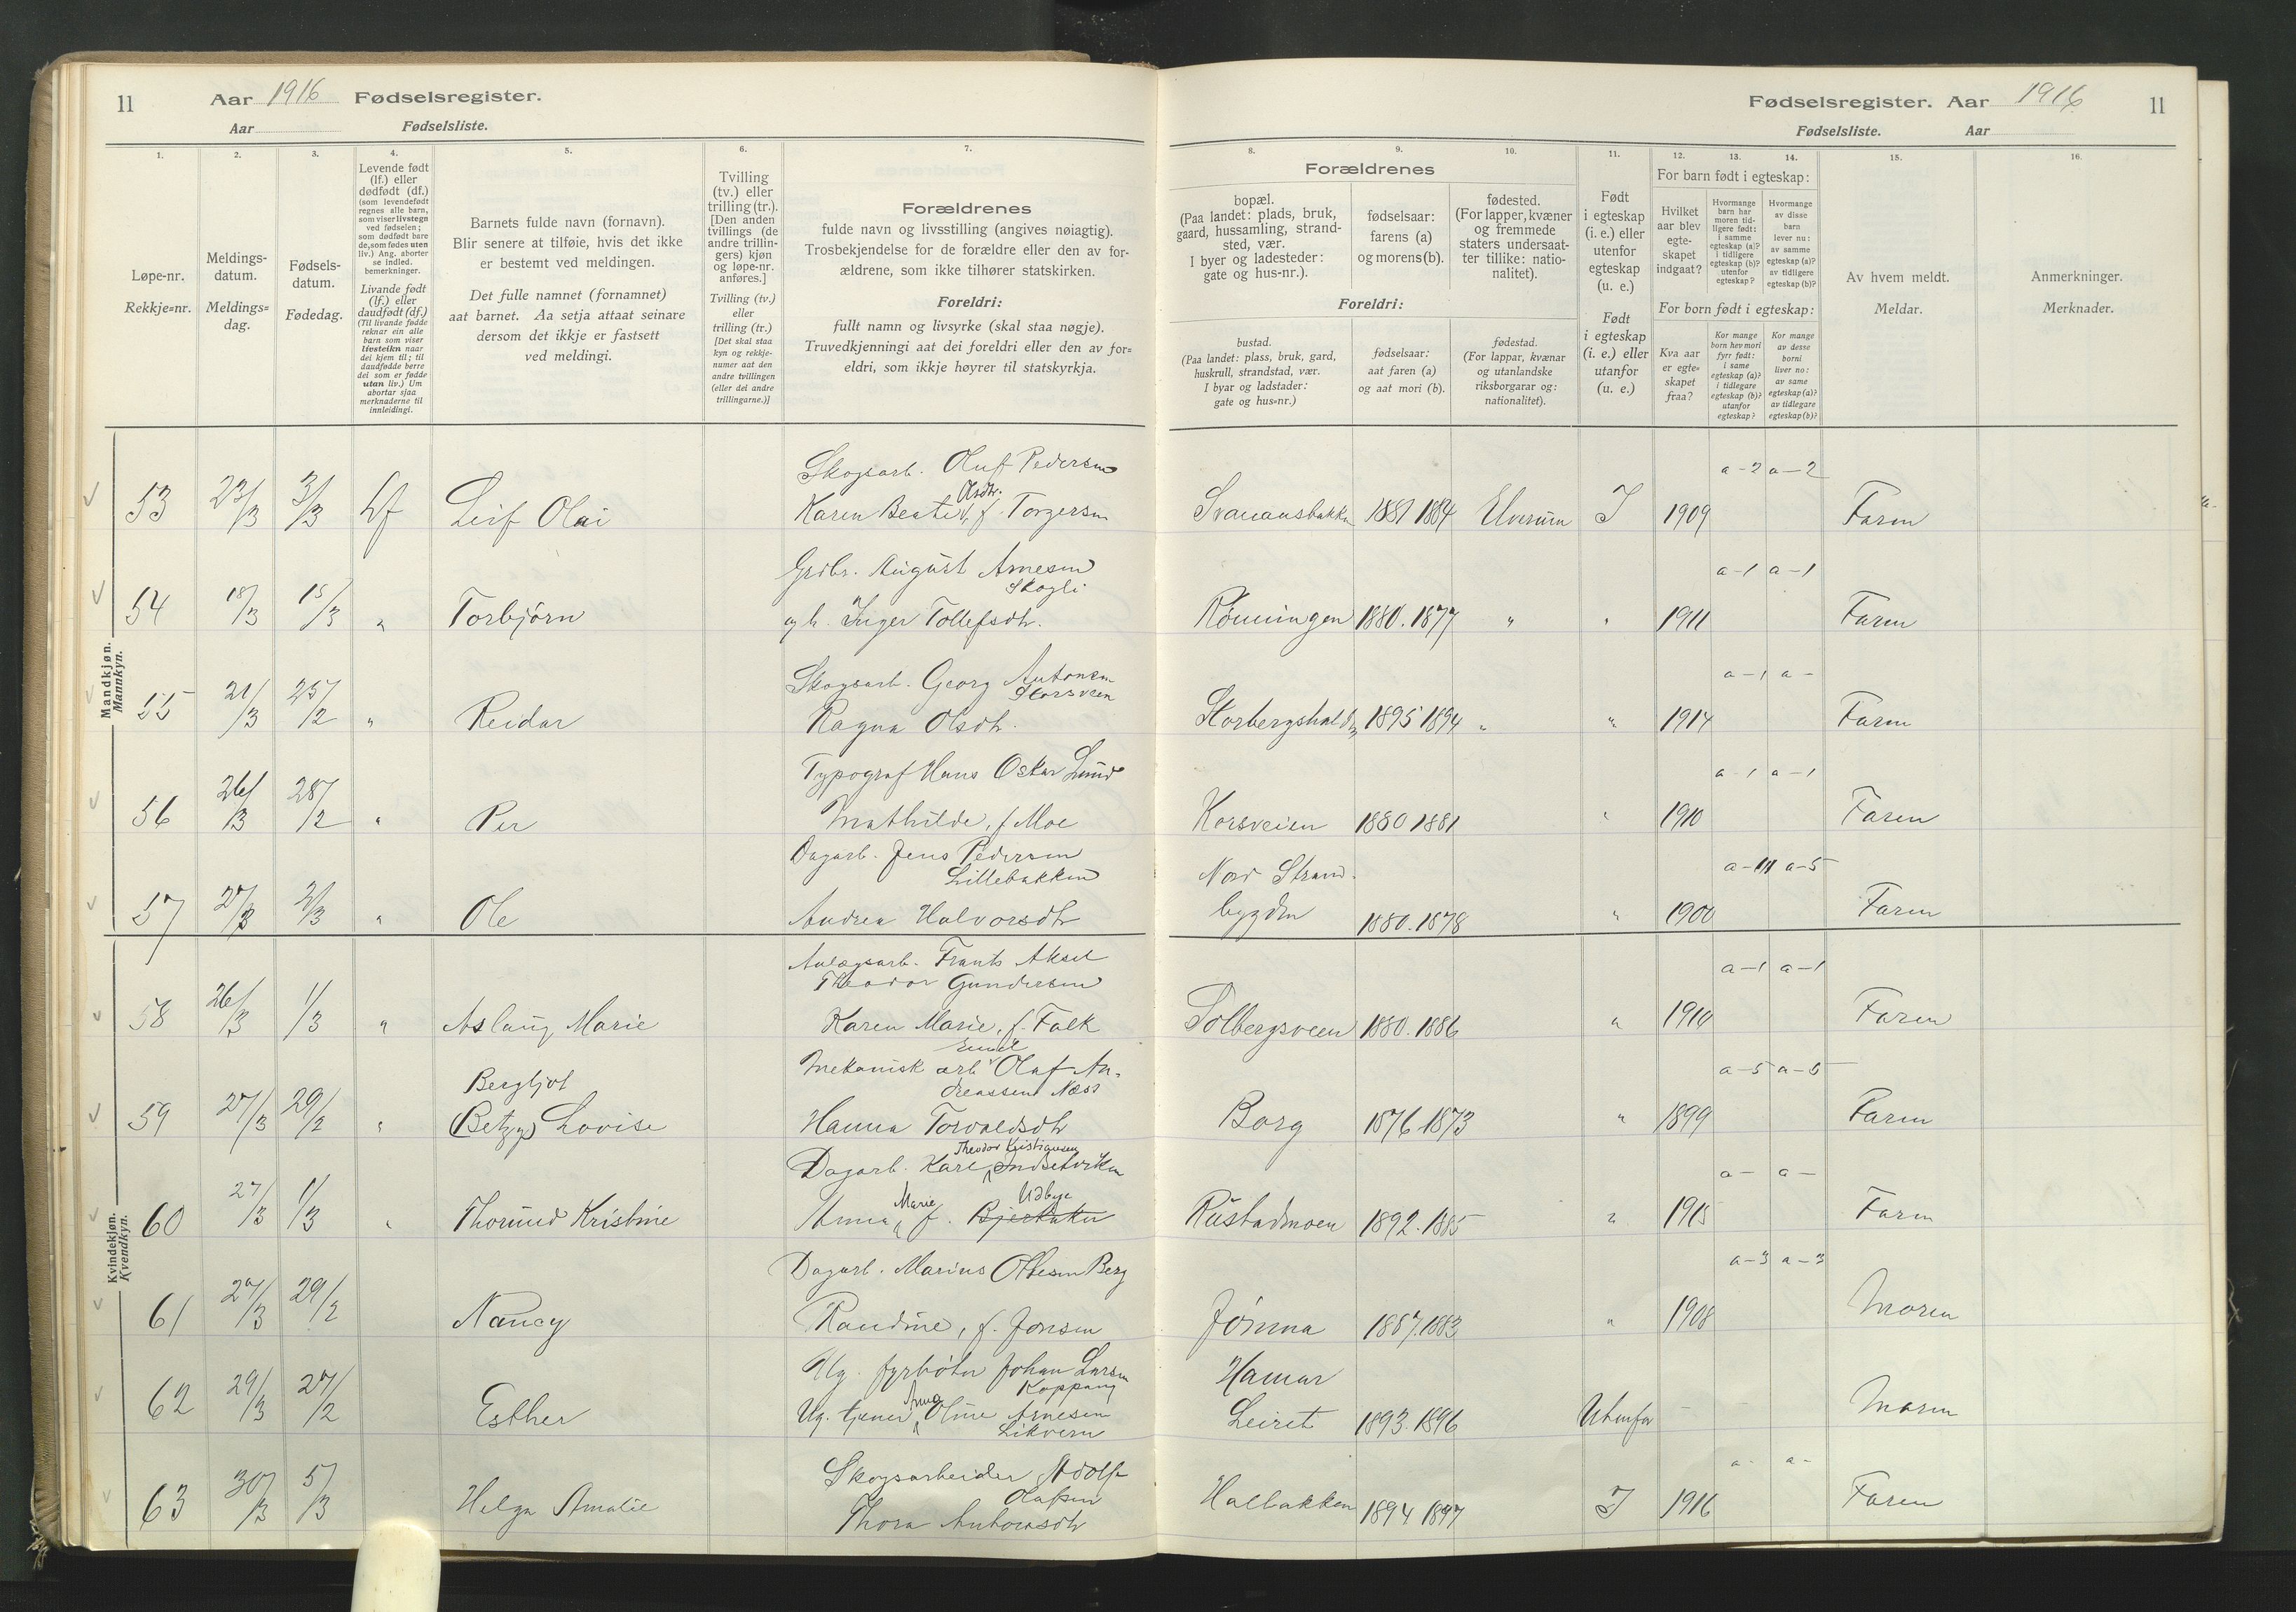 11
Aar 1916 Fødselsregister.
Aar Fødselsliste.
Fødselsregister. Aar 1916
11
Fødselsliste. Aar
1.
2.
3.
4.
5.
6.
7.
8.
9.
10.
11.
12.
13.
14.
15.
16.
Løpe-nr.
Rekkje=nr.
Meldings-
datum.
Meldings=
dag.
Fødsels-
datum.
Fødedag.
Levende født
(lf.) eller
dødfødt (df.)
(som levendefødt
regnes alle barn,
som viser livstegn
ved fødselen;
som dødfødt bare
de, som fødes uten
liv.) Ang. aborter
se indled.
bemerkninger.
Livande født
(lf.) eller
daudfødt (df.)
(Til livande fødde
reknar ein alle
barn som viser
livsteikn naar
dei kjem til; til
daudfødde berre
dei som er fødde
utan liv.) Um
abortar sjaa
merknaderne til
innleidingi.
Barnets fulde navn (fornavn).
Blir senere at tilføie, hvis det ikke
er bestemt ved meldingen.
Det fulle namnet (fornamnet)
aat barnet. Aa setja attaat seinare
dersom det ikkje er fastsett
ved meldingi.
Tvilling
(tv.) eller
trilling (tr.).
[Den anden
tvillings (de
andre trillin-
gers) kjøn
og løpe-nr.
anføres.]
Tvilling (tv.)
eller
trilling (tr.)
[Det skal staa
kyn og rekkje-
numer aat den
andre tvillingen
(eller dei andre
trillingarne.)]
Forældrenes
fulde navn og livsstilling (angives nøiagtig).
Trosbekjendelse for de forældre eller den av for-
ældrene, som ikke tilhører statskirken.
Foreldri:
fullt namn og livsyrke (skal staa nøgje).
Truvedkjenningi aat dei foreldri eller den av for=
eldri, som ikkje høyrer til statskyrkja.
Forældrenes
bopæl.
(Paa landet: plads, bruk,
gaard, hussamling, strand-
sted, vær.
I byer og ladesteder:
gate og hus-nr.).
fødselsaar:
farens (a)
og morens (b).
fødested.
(For lapper, kvæner
og fremmede
staters undersaat-
ter tillike: natio-
nalitet).
Foreldri:
bustad.
(Paa landet: plass, bruk, gard,
huskrull, strandstad, vær.
I byar og ladstader:
gate og hus=nr.)
fødselsaar:
aat faren (a)
og aat mori (b).
fødestad.
(For lappar, kvænar
og utanlandske
riksborgarar og:
nationalitet).
Født
i egteskap
(i. e.) eller
utenfor
egteskap
(u. e.)
Født
i egteskap
(i. e.) eller
utanfor
(u. e.)
For barn født i egteskap:
Hvilket
aar blev
egte-
skapet
indgaat?
Hvormange
barn har
moren tid-
ligere født:
i samme
egteskap (a)?
i tidligere
egteskap (b)?
utenfor
egteskap?
Hvormange
av disse
barn
lever nu:
av samme
egteskap (a)?
av tidligere
egteskap (b)?
For born født i egteskap:
Kva aar
er egte=
skapet
fraa?
Kor mange
born hev mori
fyrr født:
i same
egteskap (a)?
i tidlegare
egteskap (b)?
utanfor
egteskap?
Kor mange
av desse
borni
liver no:
av same
egteskap (a)?
av tidlegare
egteskap (b)?
Av hvem meldt.
Meldar.
Anmerkninger.
Merknader.
Mandkjøn.
Mannkyn.
Skogsarb. Oluf Pedersen a-2 a-2
53 23/3 3/3 Lf Leif Olai Karen Beate Olsdtr. f. Torgersen Svanaasbakken 1881 1884 Elverum I 1909 Faren
Grdbr. August Arnesen Skogli a-1 a-1
54 18/3 15/3 " Torbjørn gh. Inger Tollefsdtr. Rønningen 1880. 1877 " " 1911 Faren
Skogsarb. Georg Antonsen Korsveen a-1 a-
55 21/3 25/2 " Reidar Ragna Olsdtr. Storbergshalden 1895 1894 " " 1914 Faren
Typograf Hans Oskar Lund a-1 a-1
56 26/3 28/2 " Per Mathilde, f. Moe Korsveien 1880 1881 " 1910 Faren
Dagarb. Jens Pedersen Lillebakken Nord Strand- a-5
57 27/3 2/3 " Ole Andrea Halvorsdtr bygden 1880. 1878 " 1900 Faren
Kvindekjøn.
Kvendkyn.
Anlægsarb. Frants Aksel
Theodor Gundersen a-1 a-1
58 26/3 1/3 " Aslaug Marie Karen Marie, f. Falk Solbergsveen 1880. 1886 " 1910 Faren
Bergljot Mekanisk arb. Emil Olaf An-
dreassen Næss a-5 a-5
59 27/3 29/2 " (Betzy) Lovise Hanna Torvaldsdtr Borg 1876. 1873 " 1899 Faren
Dagarb. Karl Theodor Kristiansen Indsetviken a- a-
60 27/3 1/3 " Thorund Kristine Anna Marie f. Bjerkaker Udbye Rustadmoen 1892. 1885 " 1915 Faren
Dagarb. Marius Ottesen Berg a-3 a-3
61 27/3 29/2 Nancy Randine, f. Jonsen Jømna 1887. 1883 " 1908 Moren
Ug. fyrbøter Johan Larsen Koppang Hamar
62 29/3 27/2 Esther Ug. tjener Anna Oline Arnesen Likvern Leiret 1893. 1896 Utenfor - Moren
Skogsarbeider Adolf Olafsen a- a-
63 30/3 5/3 Helga Amalie Thora Antonsdtr Halbakken 1894 1897 I 1916 Faren